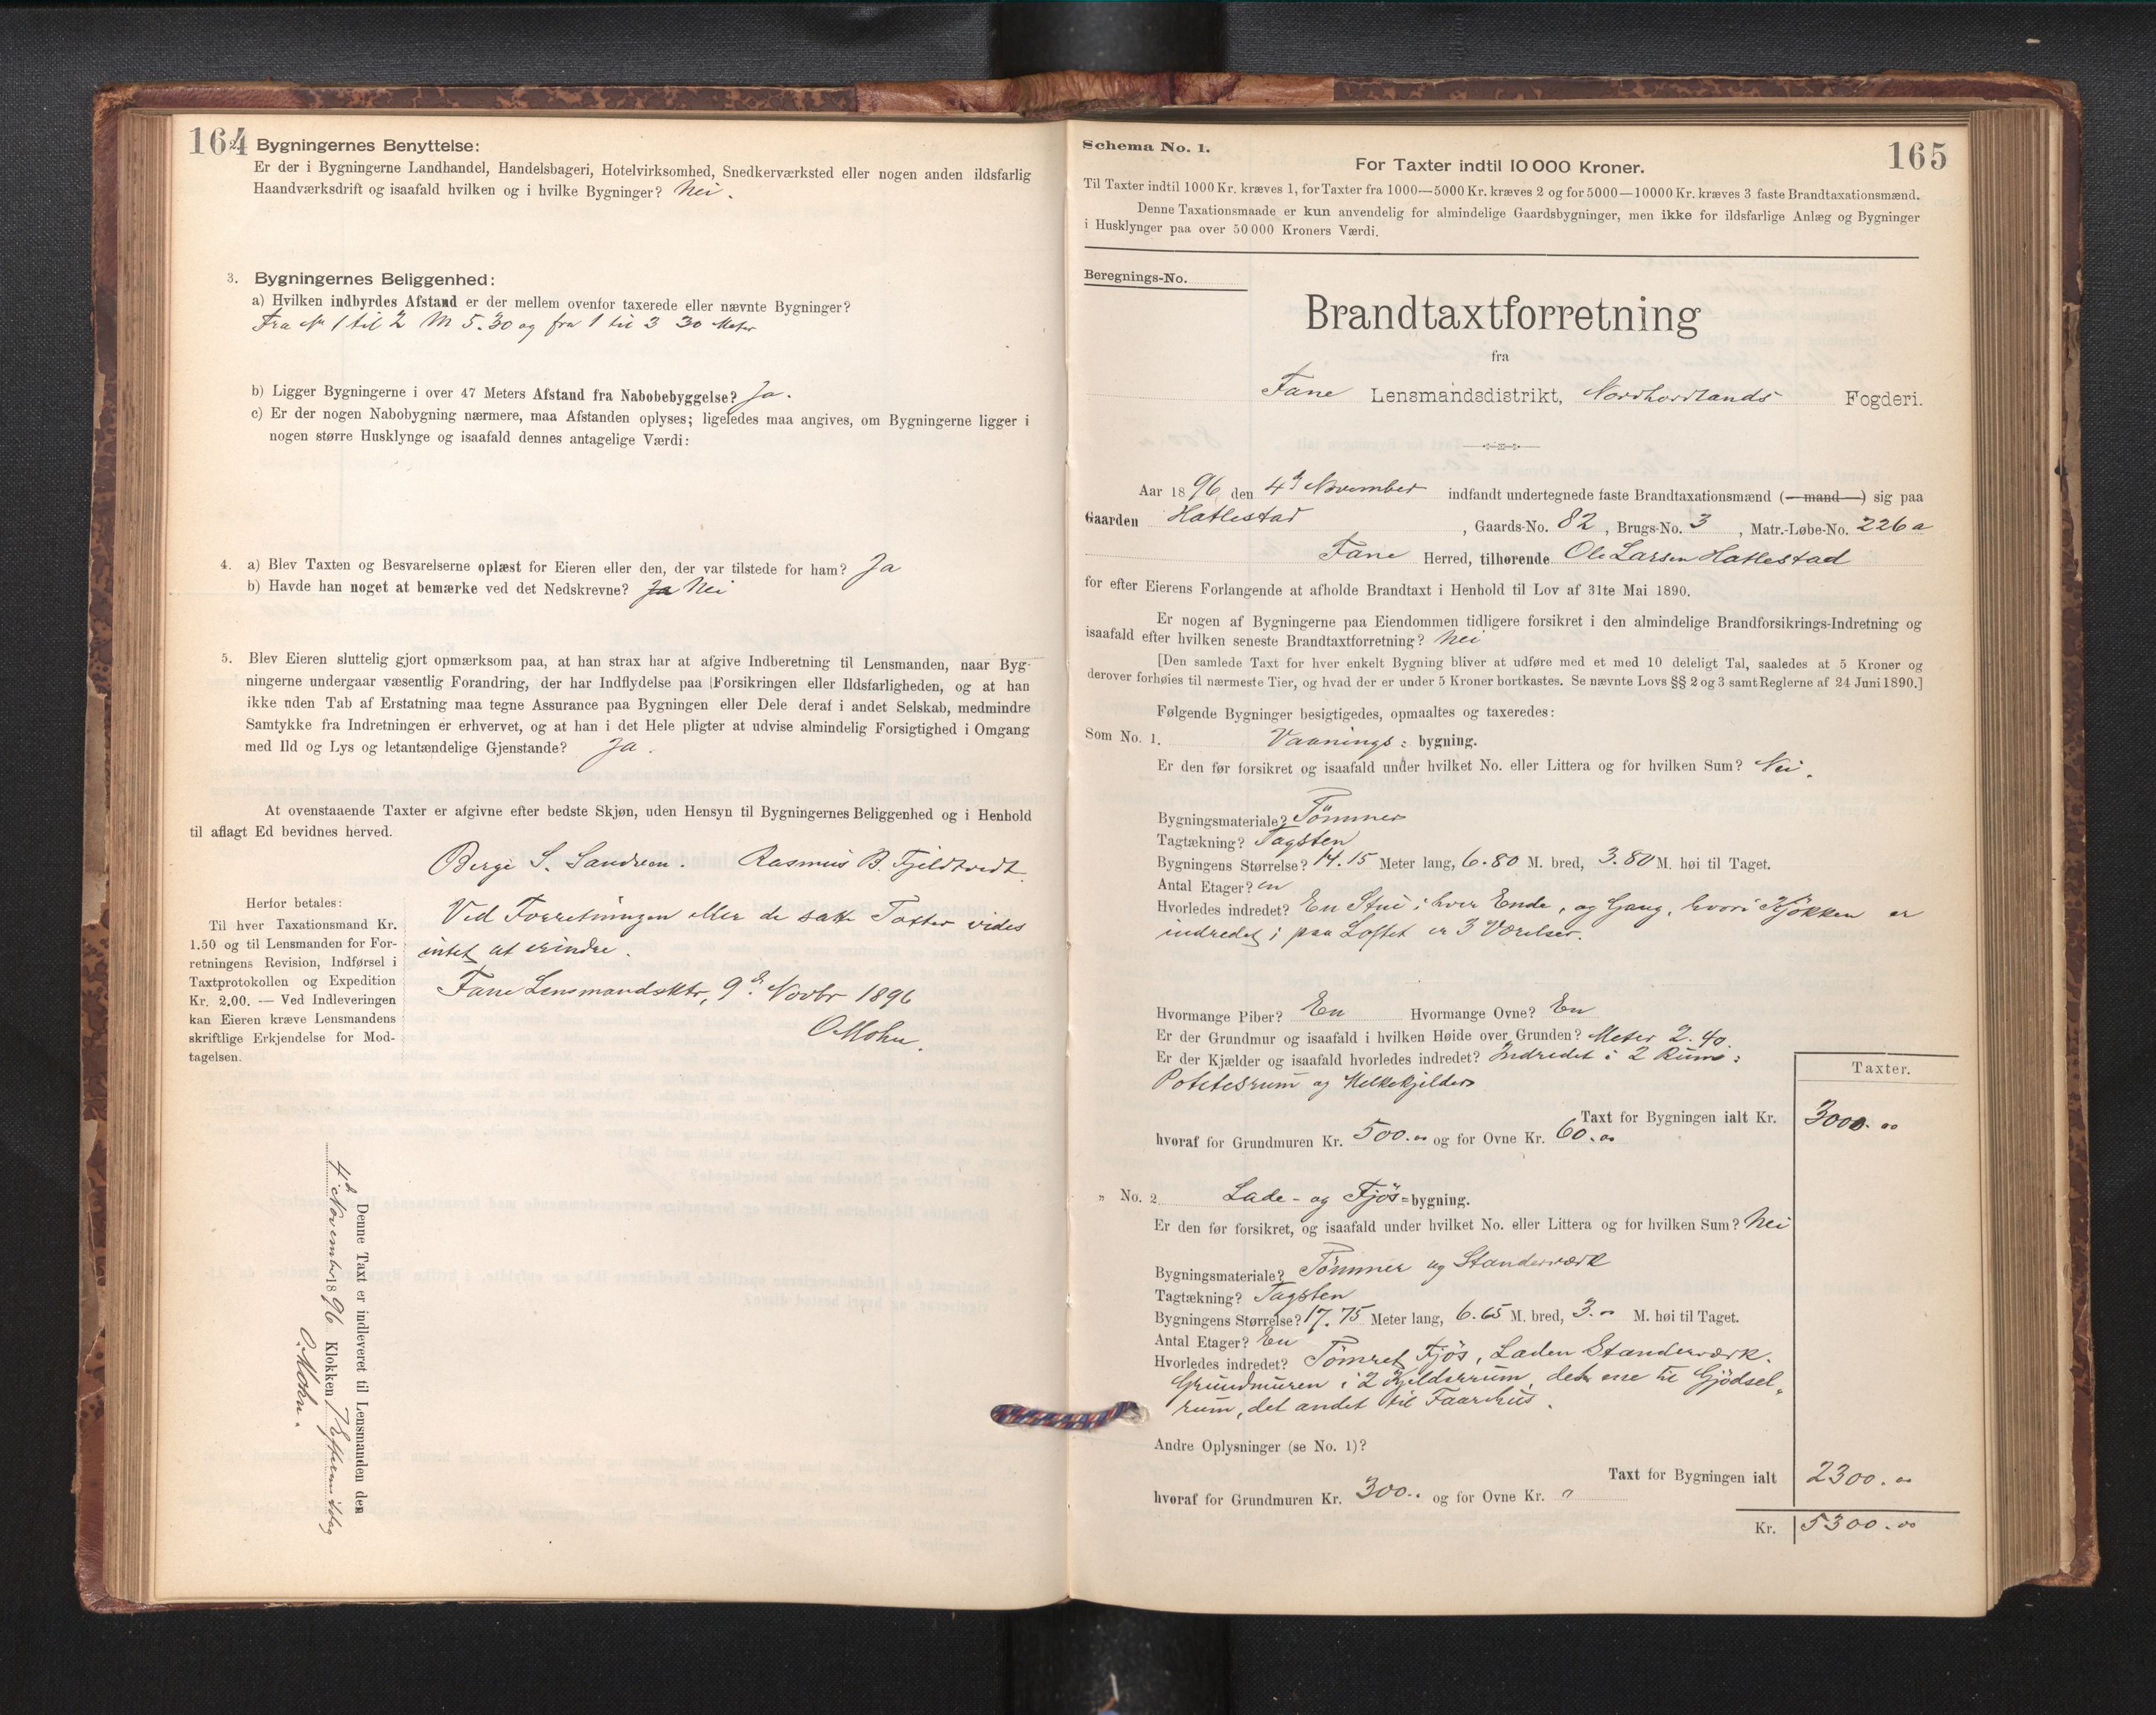 164
2. Bygningernes Benyttelse:
Er der i Bygningerne Landhandel, Handelsbageri, Hotelvirksomhed, Snedkerværksted eller nogen anden ildsfarlig
Haandværksdrift og isaafald hvilken og i hvilke Bygninger? Nei.
3. Bygningernes Beliggenhed:
a) Hvilken indbyrdes Afstand er der mellem ovenfor taxerede eller nævnte Bygninger?
Fra No 1 til 2 M 5.30 og fra 1 til 3 30 Meter
b) Ligger Bygningerne i over 47 Meters Afstand fra Nabobebyggelse? Ja.
c) Er der nogen Nabobygning nærmere, maa Afstanden oplyses; ligeledes maa angives, om Bygningerne ligger i
nogen større Husklynge og isaafald dennes antagelige Værdi:
4. a) Blev Taxten og Besvarelserne oplæst for Eieren eller den, der var tilstede for ham? Ja
b) Havde han noget at bemærke ved det Nedskrevne? Ja Nei
5. Blev Eieren sluttelig gjort opmærksom paa, at han strax har at afgive Indberetning til Lensmanden, naar Byg-
ningerne undergaar væsentlig Forandring, der har Indflydelse paa Forsikringen eller Ildsfarligheden, og at han
ikke uden Tab af Erstatning maa tegne Assurance paa Bygningen eller Dele deraf i andet Selskab, medmindre
Samtykke fra Indretningen er erhvervet, og at han i det Hele pligter at udvise almindelig Forsigtighed i Omgang
med Ild og Lys og letantændelige Gjenstande? Ja.
At ovenstaaende Taxter er afgivne efter bedste Skjøn, uden Hensyn til Bygningernes Beliggenhed og i Henhold
til aflagt Ed bevidnes herved.
Berge S. Sandven. Rasmus B. Fjeldtvedt.
Ved Forretningen eller de satte Taxter vides
intet at erindre.
Fane Lensmandsktr, 9d Novbr 1896
O. Mohn.
Herfor betales:
Til hver Taxationsmand Kr.
1.50 og til Lensmanden for For-
retningens Revision, Indførsel i
Taxtprotokollen og Expedition
Kr. 2.00. — Ved Indleveringen
kan Eieren kræve Lensmandens
skriftlige Erkjendelse for Mod-
tagelsen.
Denne Taxt er indleveret til Lensmanden den
4d November 1896 Klokken 7 Eftermiddag
O. Mohn.
165
Schema No. 1.
For Taxter indtil 10 000 Kroner.
Til Taxter indtil 1000 Kr. kræves 1, for Taxter fra 1000—5000 Kr. kræves 2 og for 5000—10000 Kr. kræves 3 faste Brandtaxationsmænd.
Denne Taxationsmaade er kun anvendelig for almindelige Gaardsbygninger, men ikke for ildsfarlige Anlæg og Bygninger
i Husklynger paa over 50 000 Kroners Værdi.
Beregnings-No.
Brandtaxtforretning
fra
Fane Lensmandsdistrikt, Nordhordlands Fogderi.
Aar 1896 den 4d November indfandt undertegnede faste Brandtaxationsmænd (— mand —) sig paa
Gaarden Hatlestad, Gaards-No. 82, Brugs-No. 3, Matr.-Løbe-No. 226a
Fane Herred, tilhørende Ole Larsen Hatlestad
for efter Eierens Forlangende at afholde Brandtaxt i Henhold til Lov af 31te Mai 1890.
Er nogen af Bygningerne paa Eiendommen tidligere forsikret i den almindelige Brandforsikrings-Indretning og
isaafald efter hvilken seneste Brandtaxtforretning? Nei
[Den samlede Taxt for hver enkelt Bygning bliver at udføre med et med 10 deleligt Tal, saaledes at 5 Kroner og
derover forhøies til nærmeste Tier, og hvad der er under 5 Kroner bortkastes. Se nævnte Lovs §§ 2 og 3 samt Reglerne af 24 Juni 1890.]
Følgende Bygninger besigtigedes, opmaaltes og taxeredes:
Som No. 1. Vaanings: bygning.
Er den før forsikret og isaafald under hvilket No. eller Littera og for hvilken Sum? Nei.
Bygningsmateriale? Tömmer
Tagtækning? Tagsten
Bygningens Størrelse? 14.15 Meter lang, 6.80 M. bred, 3.80 M. høi til Taget.
Antal Etager? en
Hvorledes indredet? En Stue i hver Ende, og Gang, hvori Kjøkken er
indredet; paa Loftet er 3 Værelser.
Hvormange Piber? En Hvormange Ovne? En
Er der Grundmur og isaafald i hvilken Høide over Grunden? Meter 2.40.
Er der Kjælder og isaafald hvorledes indredet? Indredet i 2 Rum:
Potetesrum og Melkekjelder
Taxter.
Taxt for Bygningen ialt Kr. 3000.00
hvoraf for Grundmuren Kr. 500.00 og for Ovne Kr. 60.00
" No. 2 Lade- og Fjös=bygning.
Er den før forsikret, og isaafald under hvilket No. eller Littera og for hvilken Sum? Nei
Bygningsmateriale? Tömmer og Standerværk
Tagtækning? Tagsten
Bygningens Størrelse? 17.75 Meter lang, 6.65 M. bred, 3.00 M. høi til Taget.
Antal Etager? En
Hvorledes indredet? Tömret Fjös, Laden Standerværk.
Grundmuren i 2 Kjelderrum, det ene til Gjödsel-
rum, det andet til Faarehus.
Andre Oplysninger (se No. 1)?
Taxt for Bygningen ialt 2300.00
hvoraf for Grundmuren Kr. 300.. og for Ovne Kr. "
Kr. 5300.00